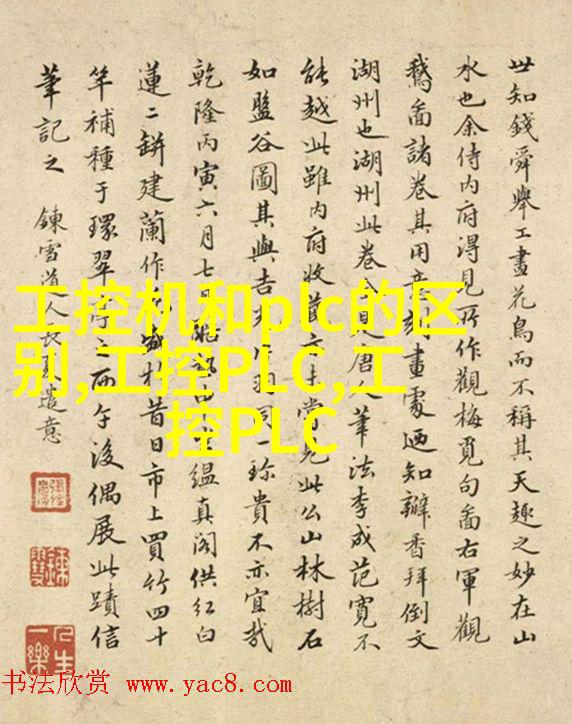 世知錢舜舉工畫花鳥而不稱其天趣之妙在山
水也余侍内府得見所作觀梅覓句啚右軍觀
鵞啚諸卷其用意 畫處迺知辦香拜倒文
湖州也湖州此卷 唐人筆法李成范寬不
能越此雖内府收 常 此公山林樹石
如盤谷圖其與吉 一珍貴不亦宜哉
乾隆丙寅六月七日 縕真阁供红白
蓮二缾建蘭作 昔日市上買竹四十
竿補種于環翠 之 午後偶展此蹟信
筆記之 鍊雪道人 遣意
工控机和plc的区
别,工控PLC,工
控PLC
人生一樂
书法欣赏 www.yac8.com